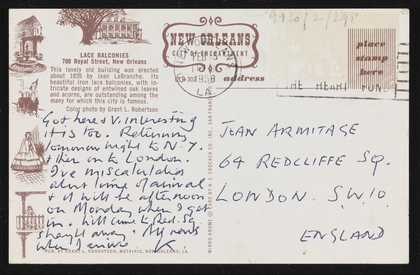 9920/2/298
LACE BALCONIES
700 Royal Street, New Orleans
This lovely old building was erected
about 1835 by Jean LaBranche. Its
beautiful iron lace balconies, with in-
tricate designs of entwined oak leaves
and acorns, are outstanding among the
many for which this city is famous.
Color photo by Grant L. Robertson
NEW ORLEANS
CITY OF ENCHANTMENT
address
place
stamp
here
LA
THE HEART FUND
Got here & v. interesting
it is too. Returning
tomorrow night to N.Y.
& then on to London.
I've miscalculated
about time of arrival
& it will be afternoon
on Monday when I get
in. Will come to Red. Sq.
straight away. All news
when I arrive. K.
JEAN ARMITAGE
64 REDCLIFFE SQ.
LONDON. SW10
ENGLAND
PUB. BY GRANT L. ROBERTSON, METAIRIE, NEW ORLEANS, LA.